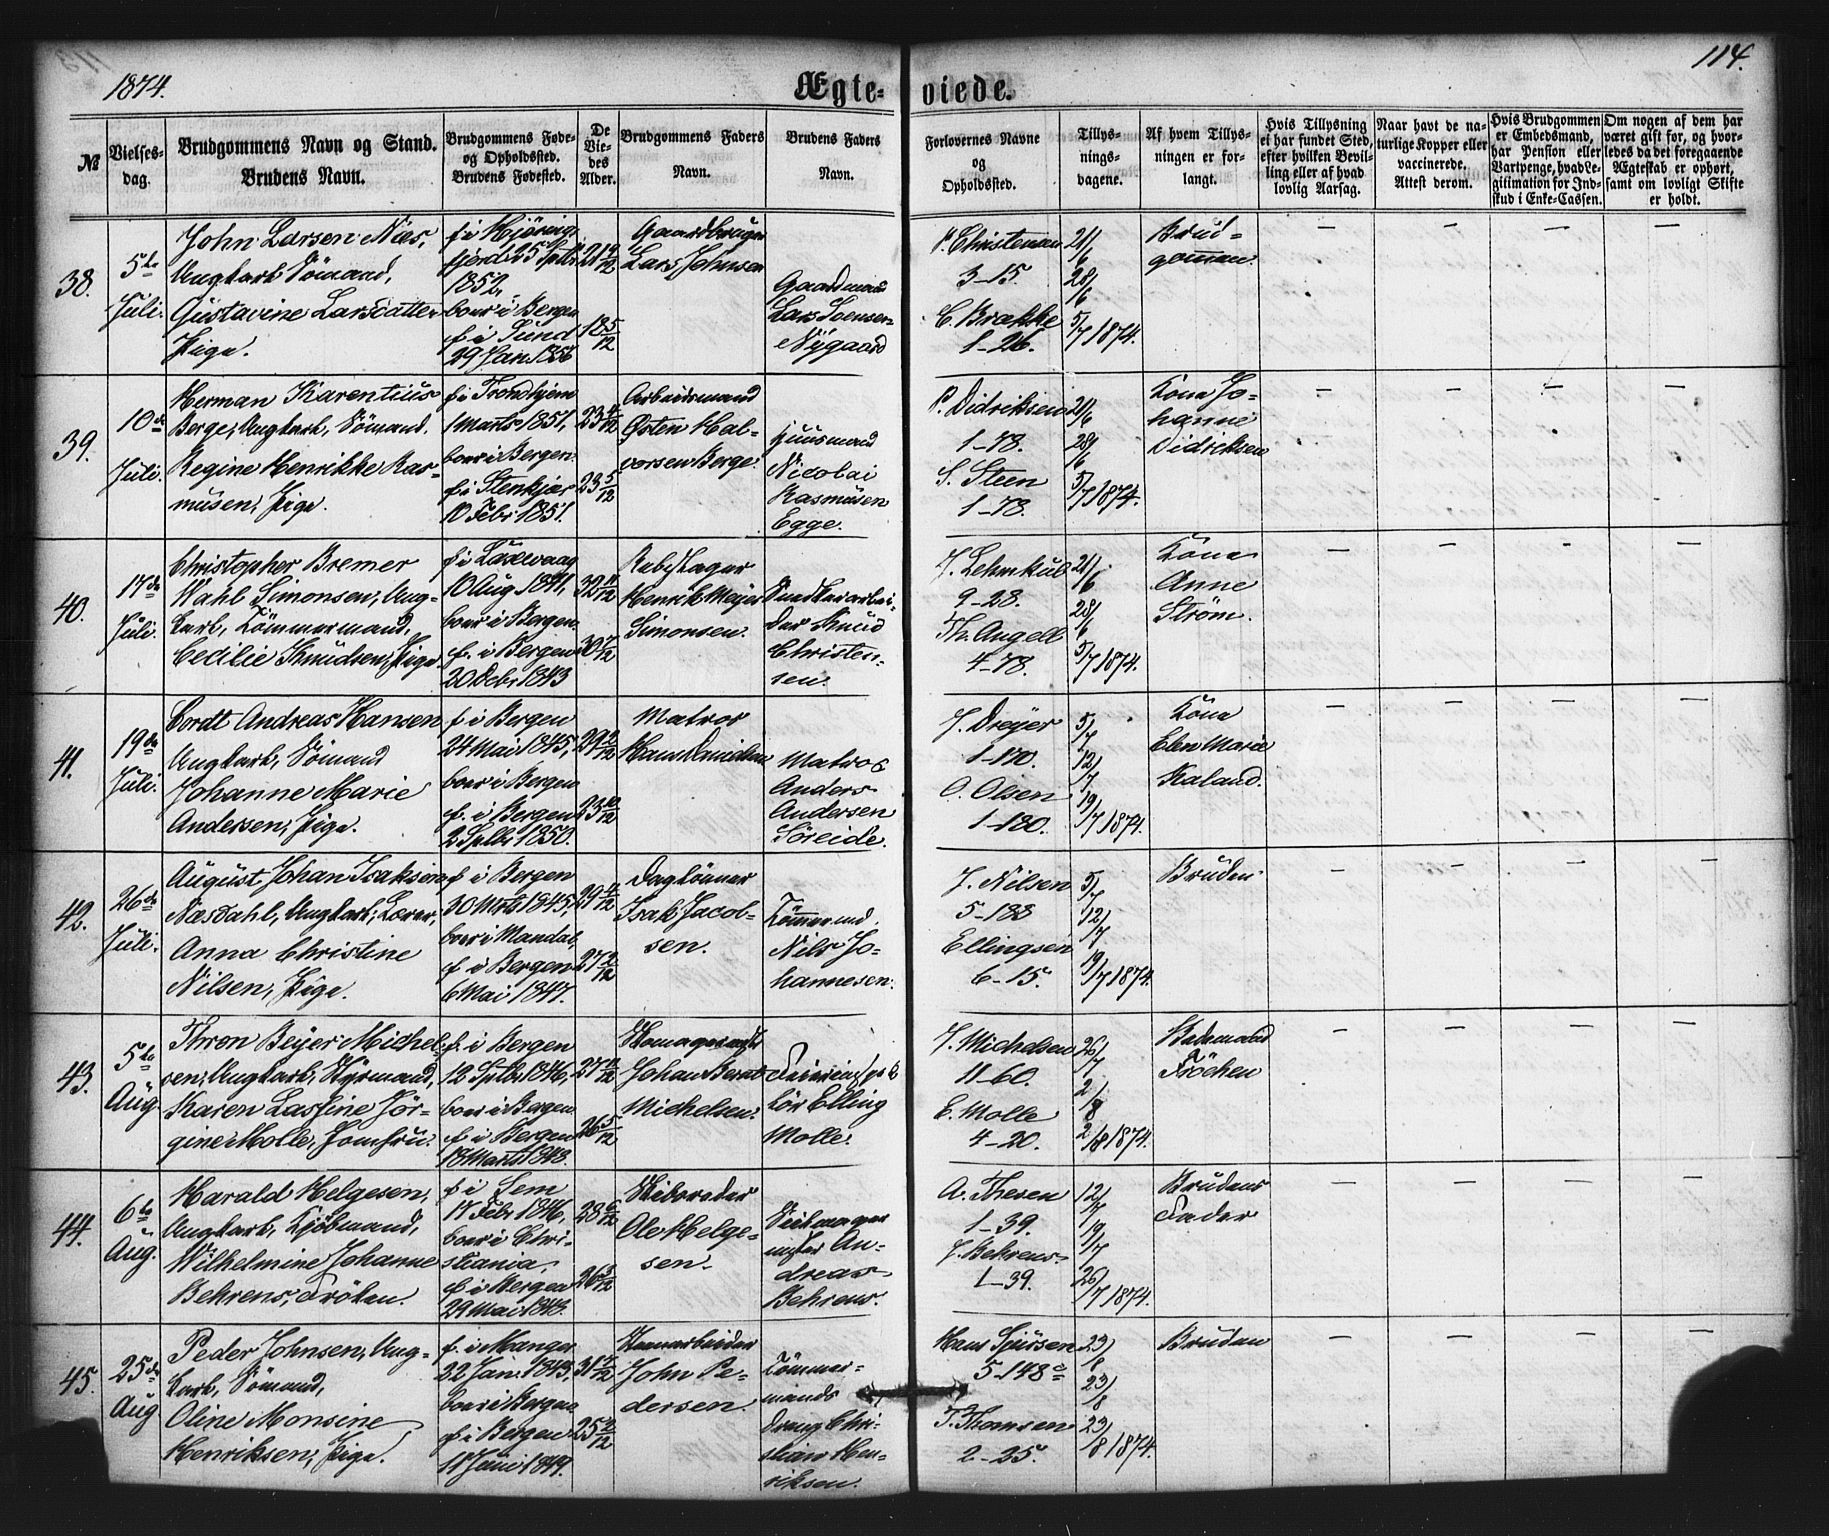 1874.
Ægte-viede.
114.
№
Vielses-
dag.
Brudgommens Navn og Stand.
Brudens Navn.
Brudgommens Føde-
og Opholdssted.
Brudens Fødested.
De
Vie-
des
Alder.
Brudgommens Faders
Navn.
Brudens Faders
Navn.
Forlovernes Navne
og
Opholdssted.
Tillys-
nings-
dagene.
Af hvem Tillys-
ningen er for-
langt.
Hvis Tillysning
ei har fundet Sted,
efter hvilken Bevil-
ling eller af hvad
lovlig Aarsag.
Naar havt de na-
turlige Kopper eller
vaccinerede.
Attest derom.
Hvis Brudgommen
er Embedsmand,
har Pension eller
Vartpenge, hvad Le-
gitimation for Ind-
skud i Enke-Cassen.
Om nogen af dem har
været gift for, og hvor-
ledes da det foregaaende
Ægteskab er ophørt,
samt om lovligt Skifte
er holdt.
38.
5te
Juli.
John Larsen Næs,
Ungkarl, Sømand,
Gustavine Larsdatter
Pige.
f. i Hjöring-
fjord 25 Sptb.
1852,
boer i Bergen
f. i Sund
29 Jan. 1856
21 9/12
18 5/12
Gaardbruger
Lars Johnsen
Gaardmand
Lars Iversen
Nygaard
P. Christensen
3-15.
C. Brække
1-26.
21/6
28/6
5/7 1874.
Brud-
gommen.
39.
10de
Juli.
Herman Karentius
Berge, Ungkarl, Sömand.
Regine Henrikke Ras-
musen, Pige.
f. i Trondhjem
1 Marts 1851,
boer i Bergen.
f. i Stenkjær
10 Febr 1851.
23 4/12
23 5/12
Arbeidsmand
Østen Hal-
vorsen Berge.
Huusmand
Nicolai
Rasmusen
Egge.
P. Didriksen
1-78.
S. Steen
1-78.
21/6
28/6
5/7 1874.
Kona Jo-
hanne
Didriksen
40.
17de
Juli.
Christopher Bremer
Wahl Simonsen, Ung-
karl, Tömmermand,
Cecilie Knudsen, Pige.
f. i Laxevaag
10 Aug. 1841,
boer i Bergen.
f. i Bergen
20 Debr 1843
32 11/12
30 7/12
Rebslager
Henrik Meyer
Simonsen.
Knud
Christen-
sen.
J. Lehmkul
9-28.
Th. Angell
4-78.
21/6
28/6
5/7 1874.
Kona
Anne
Ström.
41.
19de
Juli.
Cordt Andreas Hansen
Ungkarl, Sömand
Johanne Marie
Andersen, Pige.
f. i Bergen
24 Mai 1845,
boer i Bergen
f. i Bergen
2 Sptbr 1850.
29 2/12
23 10/12
Matros
Hans Danielsen
Matros
Anders
Andersen
Søreide.
J. Dreyer
1-170.
O. Olsen
1-180.
5/7
12/7
19/7 1874.
Kona
Elen Marie
Kaland.
42.
26de
Juli.
August Johan Isaksen
Næsdahl, Ungkarl, Lærer,
Anna Christine
Nilsen, Pige.
f. i Bergen
30 Mrts 1845,
boer i Mandal,
f. i Bergen
6 Mai 1847.
29 4/12
27 2/12
Daglönner
Isak Jacob-
sen.
Tömmermd.
Nils Jo-
hannesen.
J. Nilsen
5-188
Ellingsen
6-15.
5/7
12/7
19/7 1874.
Bruden
43.
5te
Aug.
Thron Beyer Michel-
sen, Ungkarl, Styrmand,
Karen Lassine Jör-
gine Molle, Jomfru.
f. i Bergen
12 Sptbr 1846,
boer i Bergen
f. i Bergen
18 Marts 1848.
27 11/12
26 5/12
Skomagermester
Johan Bernt
Michelsen.
Elling
Molle.
J. Michelsen
11-60.
E. Molle
4-20.
26/7
2/8
2/8 1874.
Bademoder
Fröchen
44.
6te
Aug.
Harald Helgesen,
Ungkarl, Kjöbmand,
Wilhelmine Johanne
Behrens, Fröken.
f. i Sem
17 Febr 1846,
boer i Chri-
stiania.
f. i Bergen
29 Mai 1848.
28 6/12
26 3/12
Skibsreder
Ole Helge-
sen.
Seilmager
mester An-
dreas
Behrens.
A. Thesen
1-39.
J. Behrens
1-39.
12/7
19/7
26/7 1874.
Brudens
Fader
45.
25de
Aug
Peder Johnsen, Ung-
karl, Sömand,
Oline Monsine
Henriksen, Pige.
f. i Manger
22 Jan. 1843,
boer i Bergen
f. i Bergen
11 Juni 1849.
31 7/12
25 2/12
John Pe-
dersen.
Tömmer-
mands
dreng Chri-
stian Hen-
riksen.
Hans Sjursen
5-148c
T. Thomsen
2-25.
23/8
23/8
23/8 1874.
Bruden